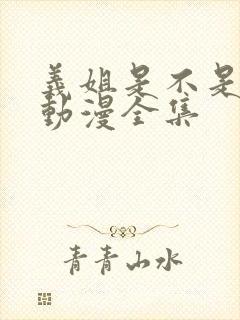 義姐是不是
動漫全集
青青山水